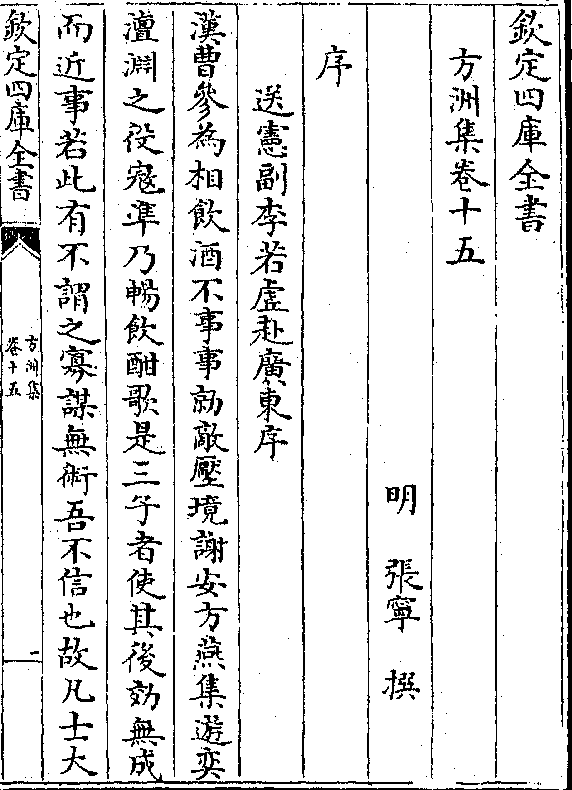 欽定四庫全書
方洲集卷十五
明　張寧　撰
序
送憲副李若虛赴廣東序
漢曹參為相飲酒不事事勍敵壓境謝安方燕集遊奕
澶淵之役寇準乃暢飲酣歌是三子者使其後効無成
而近事若此有不謂之寡謀無術吾不信也故凡士大
欽定四庫全書
方洲集
卷十五
一